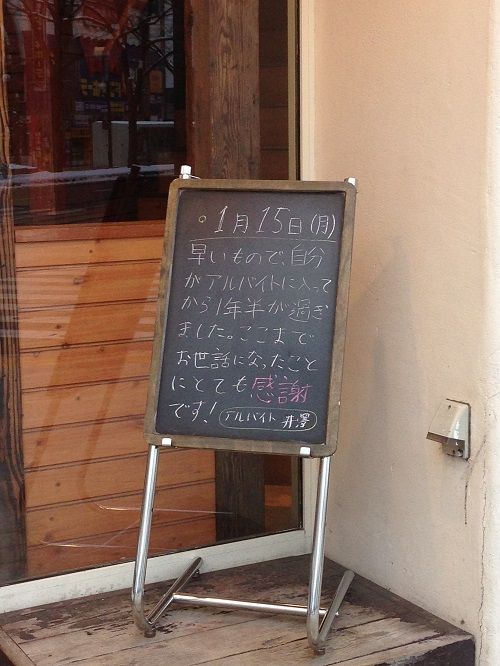 。1月15日(月)
早いもので、自分
がアルバイトに入って
から1年半が過ぎ
ました。ここまで
お世話になったこと
にとても感謝
です! アルバイト 井澤